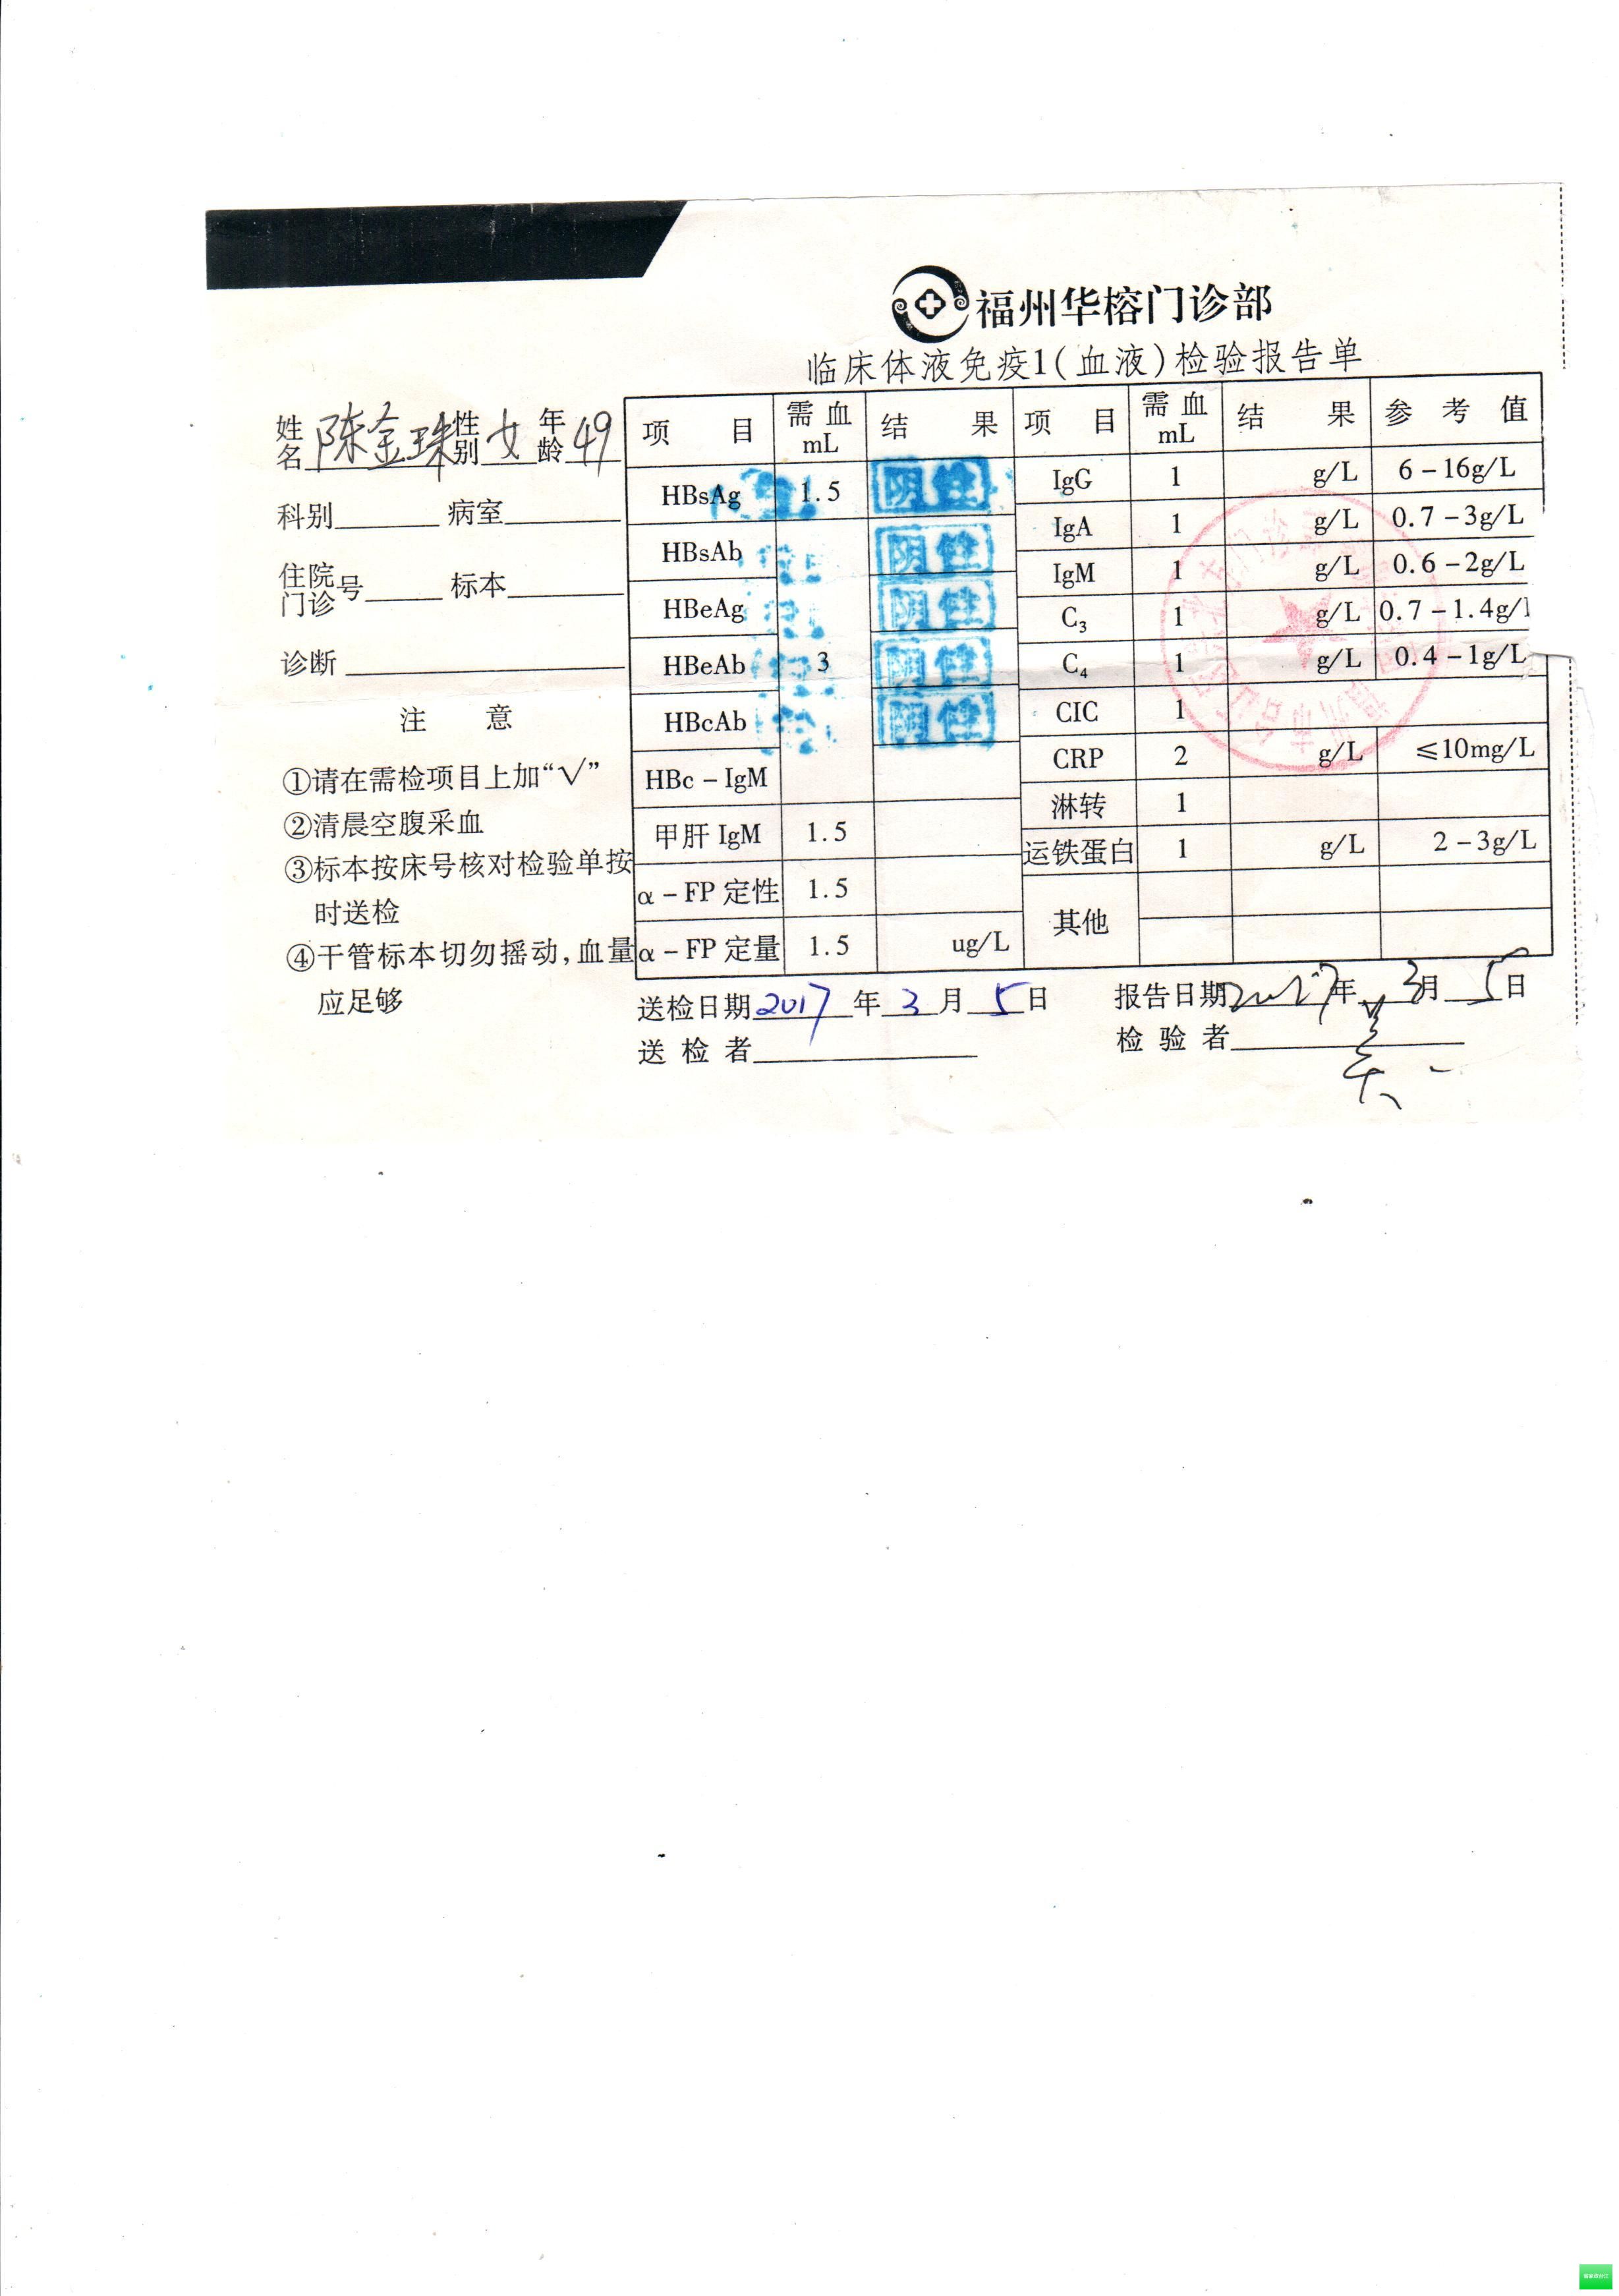 福州华榕门诊部
临床体液免疫1(血液)检验报告单
姓名 陈金珠 性别 女 年龄 49
科别 病室
住院门诊号 标本
诊断
注 意
①请在需检项目上加“√”
②清晨空腹采血
③标本按床号核对检验单按
时送检
④干管标本切勿摇动,血量
应足够
项 目 需血mL 结 果 项 目 需血mL 结 果 参 考 值
HBsAg 1.5 阴性 IgG 1 g/L 6-16g/L
HBsAb 阴性 IgA 1 g/L 0.7-3g/L
HBeAg 阴性 IgM 1 g/L 0.6-2g/L
HBeAb 3 阴性 C₃ 1 g/L 0.7-1.4g/
HBcAb 阴性 C₄ 1 g/L 0.4-1g/L
HBc-IgM CIC 1
甲肝 IgM 1.5 CRP 2 g/L ≤10mg/L
α-FP 定性 1.5 淋转 1
α-FP 定量 1.5 ug/L 运铁蛋白 1 g/L 2-3g/L
其他
送检日期 2017 年 3 月 5 日 报告日期 2017 年 3 月 5 日
送 检 者 检 验 者